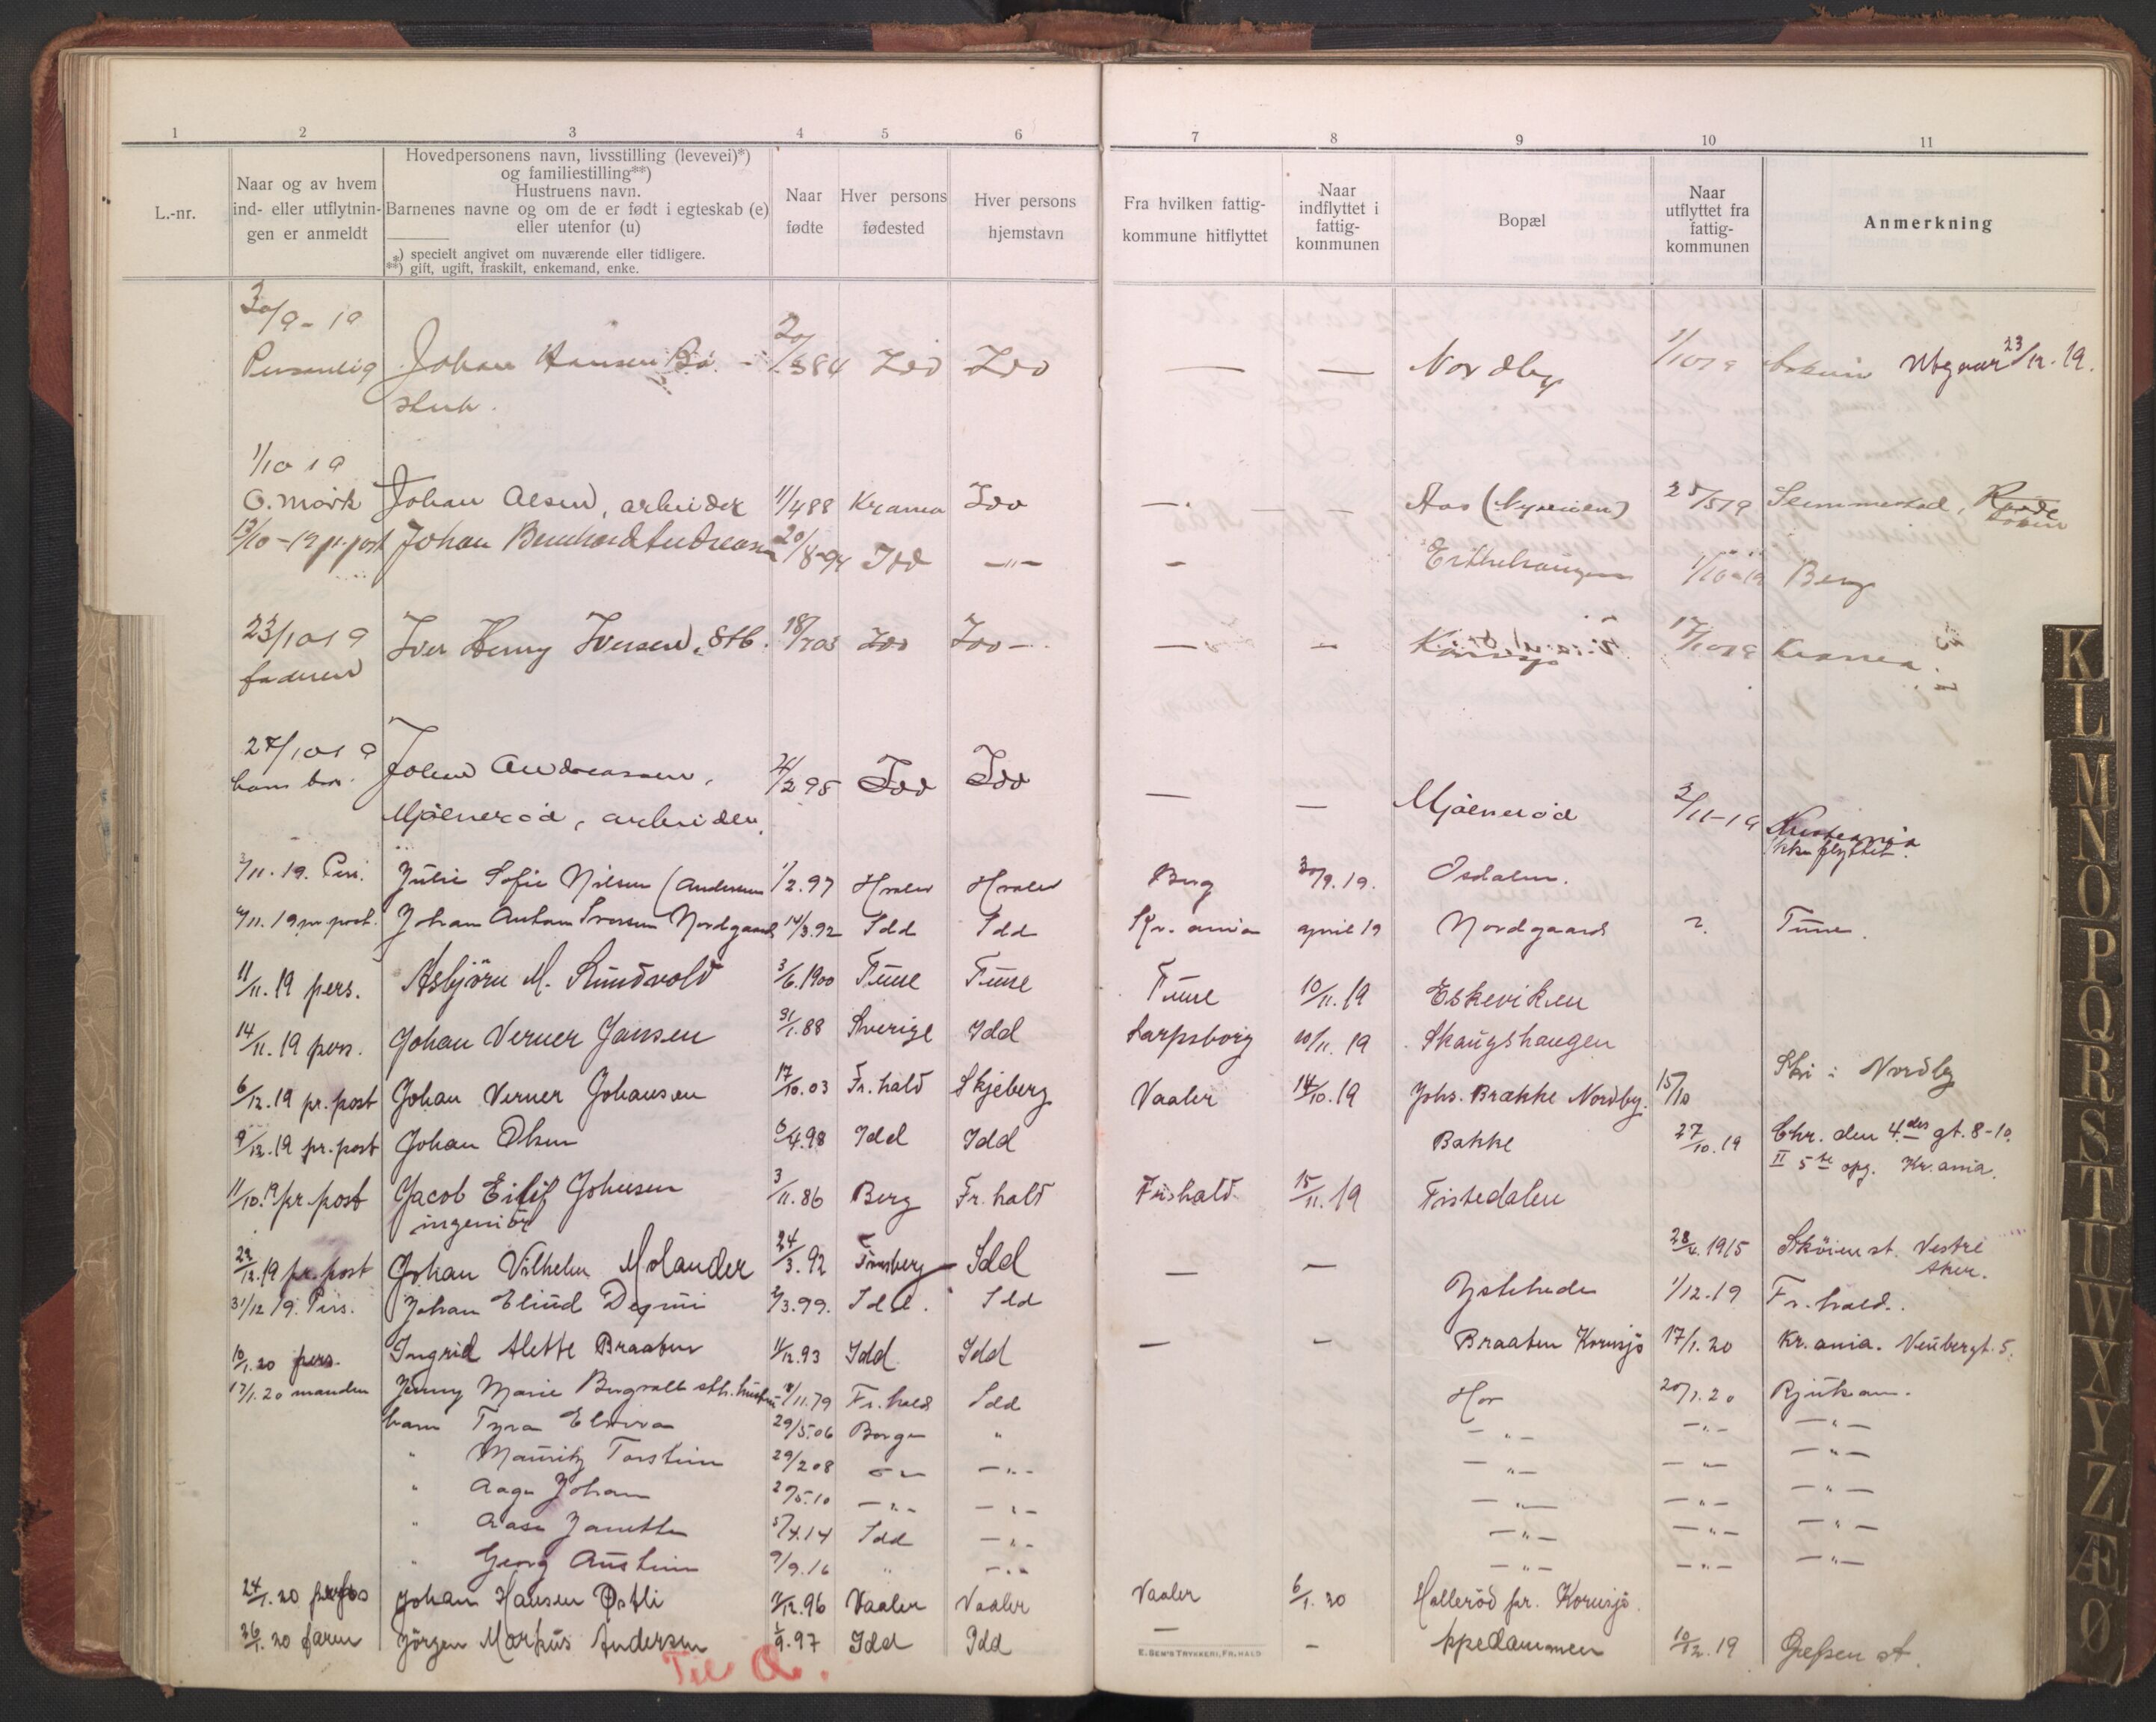 1 2 3 4 5 6 7 8 9 10 11
L.-nr.
Naar og av hvem
ind- eller utflytnin-
gen er anmeldt
Hovedpersonens navn, livsstilling (levevei)*)
og familiestilling**)
Hustruens navn.
Barnenes navne og om de er født i egteskab (e)
eller utenfor (u)
*) specielt angivet om nuværende eller tidligere.
**) gift, ugift, fraskilt, enkemand, enke.
Naar
fødte
Hver persons
fødested
Hver persons
hjemstavn
Fra hvilken fattig-
kommune hitflyttet
Naar
indflyttet i
fattig-
kommunen
Bopæl
Naar
utflyttet fra
fattig-
kommunen
Anmerkning
30/9-19
Personlig Johan Hansen Bø. Idd Idd — — Nordby 1/1019 23/12. 19.
1/10 19
O. Mørk Johan Olsen, arbeider 11/488 Krania Idd — — Aas 25/519 Slemmestad,
13/10-19 pr. post Johan Bernhard Andreasen 20/8-94 Idd —"— — 1/10-19 Berg
23/1019 Iver Henry Iversen, 18/703 Idd Idd — — Kornsjø 17/1019 Krania.
faderen
27/1019
hans bror. Johan Andreassen, Idd Idd — — Mjølnerød 2/11-19 Kristiania
Mjølnerød, arbeider. ikke flyttet.
/11. 19. Pers. Julie Sofie Nilsen (Andersen 1/2.97 Hvaler Hvaler Berg 30/9.19. Osdalen.
/11. 19 pr. post. Johan Anton Iversen Nordgaard 14/3.92 Idd Idd Kr.ania april 19 Nordgaard ? Tune.
11/11. 19 pers. Asbjörn M. Sundvold 3/6.1900 Tune Tune Tune 10/11. 19 Eskeviken
14/11. 19 pers. Johan Verner Jansen 31/1.88 Sverige Idd Sarpsborg 10/11. 19 Skaugshaugen
6/12. 19 pr. post Johan Verner Johansen 17/10.03 Fr.hald Skjeberg Vaaler 14/10.19 Johs. Brække Nordby. 15/10 Ski i Nordby
9/12. 19 pr. post Johan Olsen 6/4.98 Idd Idd Bakke 27/10.19 Chr. den 4.des gt. 8-10.
II 5te opg. Kr.ania.
11/10.19 pr. post Jacob Eilif Johnsen 3/11.86 Berg Fr.hald Fr.hald 15/11. 19 Tistedalen
ingeniör
22/12.19 pr. post Johan Vilhelm Molander 24/3.92 Tønsberg Idd — — 28/6.1915 Sköien st. Vestre
Aker.
31/12 19. Pers. Johan Elind 2/3.99. Idd. Idd Ystehede 1/12.19 Fr.hald.
10/1.20 pers. Ingrid Alette Braaten 11/12.93 Idd Idd — — Braaten Kornsjø 17/1.20 Kr.ania. Neubergt. 5.
17/1.20 manden Jenny Marie Bergvall sth. hustru /11.79 Fr.hald Idd Hov 20/1.20 Rjukan.
barn Tyra Elvira 29/5.06 Borge " —"— —"— —"—
" Mauritz Torstein 29/208 —"— —"— —"— —"— —"—
" Aage Johan 2/5.10 —"— —"— —"— —"— —"—
" Aase Janette 5/4.14 Idd —"— —"— —"— —"—
" Georg Austein 9/9.16 " —"— —"— —"— —"—
24/1.20 Johan Hansen Østli /12.96 Vaaler Vaaler Vaaler 6/1. 20 Hallerød pr. Kornsjø.
26/1.20 faren Jörgen Markus Andersen 1/9.97 Idd Idd — — 10/12.19 Grefsen st.
Til Q.
E. SEM'S TRYKKERI, FR.HALD
K
L
M
N
O
P
Q
R
S
T
U
W
X
Y
Z
Æ
Ø